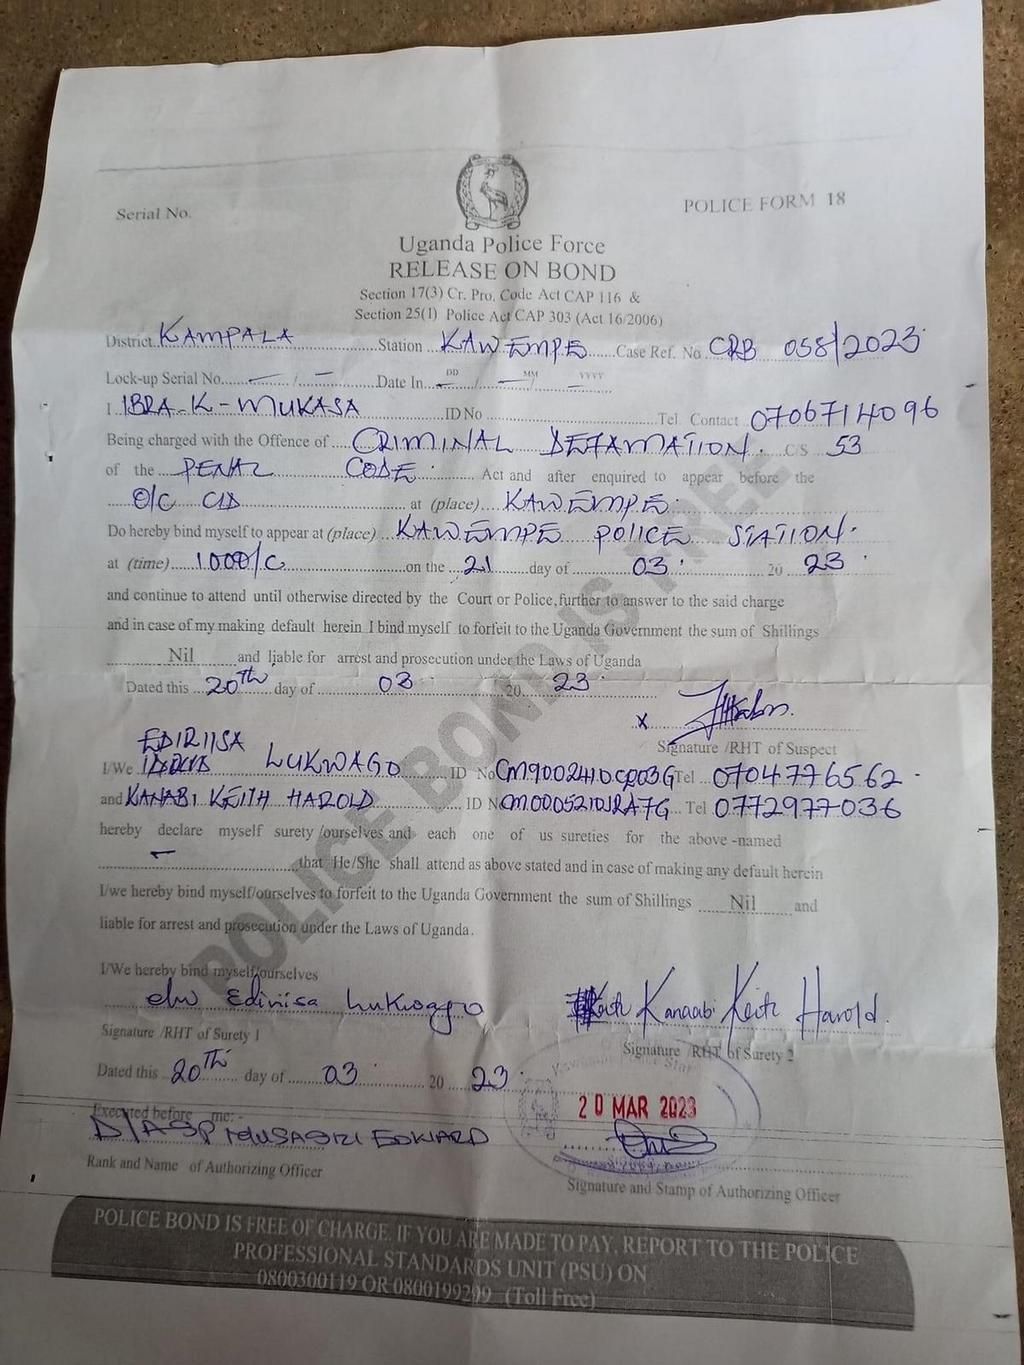 Serial No.
POLICE FORM 18
Uganda Police Force
RELEASE ON BOND
Section 17(3) Cr. Pro. Code Act CAP 116 &
Section 25(1) Police Act CAP 303 (Act 16/2006)
District KAMPALA Station KAWEMPE Case Ref. No CRB 058/2023
Lock-up Serial No. — / — Date In — DD / — MM / — YYYY
I IBRA-K-MUKASA ID No Tel. Contact 0706714096
Being charged with the Offence of CRIMINAL DEFAMATION. C/S 53
of the PENAL CODE. Act and after enquired to appear before the
O/C CID at (place) KAWEMPE.
Do hereby bind myself to appear at (place) KAWEMPE POLICE STATION.
at (time) 1000/C on the 21 day of 03. 20 23.
and continue to attend until otherwise directed by the Court or Police, further to answer to the said charge
and in case of my making default herein I bind myself to forfeit to the Uganda Government the sum of Shillings
Nil and liable for arrest and prosecution under the Laws of Uganda
Dated this 20th day of 03. 20 23.
x
Signature /RHT of Suspect
EDIRIISA
I/We LUKWAGO ID No Tel 0704776562.
and KANABI KEITH HAROLD ID No Tel 0772977036
hereby declare myself surety /ourselves and each one of us sureties for the above -named
— that He/She shall attend as above stated and in case of making any default herein
I/we hereby bind myself/ourselves to forfeit to the Uganda Government the sum of Shillings Nil and
liable for arrest and prosecution under the Laws of Uganda.
I/We hereby bind myself/ourselves
Ediriisa Lukwago Keith Kanaabi Keith Harold.
Signature /RHT of Surety 1
Signature /RHT of Surety 2
Dated this 20TH day of 03 20 23.
20 MAR 2023
Executed before me: -
D/ASP MUSAGIZI EDWARD
Rank and Name of Authorizing Officer
Signature and Stamp of Authorizing Officer
POLICE BOND IS FREE
POLICE BOND IS FREE OF CHARGE. IF YOU ARE MADE TO PAY, REPORT TO THE POLICE
PROFESSIONAL STANDARDS UNIT (PSU) ON
0800300119 OR 0800199299 (Toll Free)